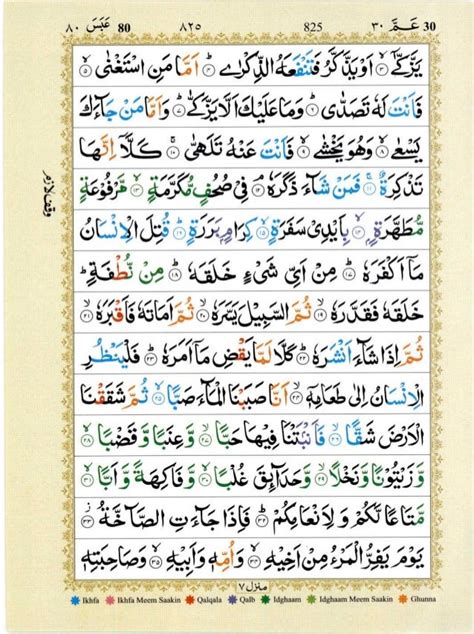 ٨٠ عَبَسَ 80 ٨٢٥ 825 ٣٠ عَمَّ 30
يَزَّكّٰۤىۙ ﴿٣﴾ اَوْ يَذَّكَّرُ فَتَنْفَعَهُ الذِّكْرٰىؕ ﴿٤﴾ اَمَّا مَنِ اسْتَغْنٰىۙ ﴿٥﴾
فَاَنْتَ لَهٗ تَصَدّٰىؕ ﴿٦﴾ وَمَا عَلَيْكَ اَلَّا يَزَّكّٰىؕ ﴿٧﴾ وَاَمَّا مَنْ جَآءَكَ
يَسْعٰىۙ ﴿٨﴾ وَهُوَ يَخْشٰىۙ ﴿٩﴾ فَاَنْتَ عَنْهُ تَلَهّٰىۚ ﴿١٠﴾ كَلَّاۤ اِنَّهَا
تَذْكِرَةٌۚ ﴿١١﴾ فَمَنْ شَآءَ ذَكَرَهٗۘ ﴿١٢﴾ فِيْ صُحُفٍ مُّكَرَّمَةٍۙ ﴿١٣﴾ مَّرْفُوْعَةٍ
وقف لازم
مُّطَهَّرَةٍۭۙ ﴿١٤﴾ بِاَيْدِيْ سَفَرَةٍۙ ﴿١٥﴾ كِرَامٍۭ بَرَرَةٍؕ ﴿١٦﴾ قُتِلَ الْاِنْسَانُ
مَاۤ اَكْفَرَهٗؕ ﴿١٧﴾ مِنْ اَيِّ شَيْءٍ خَلَقَهٗؕ ﴿١٨﴾ مِنْ نُّطْفَةٍؕ
خَلَقَهٗ فَقَدَّرَهٗۙ ﴿١٩﴾ ثُمَّ السَّبِيْلَ يَسَّرَهٗۙ ﴿٢٠﴾ ثُمَّ اَمَاتَهٗ فَاَقْبَرَهٗۙ ﴿٢١﴾
ثُمَّ اِذَا شَآءَ اَنْشَرَهٗؕ ﴿٢٢﴾ كَلَّا لَمَّا يَقْضِ مَاۤ اَمَرَهٗؕ ﴿٢٣﴾ فَلْيَنْظُرِ
الْاِنْسَانُ اِلٰى طَعَامِهٖۤۙ ﴿٢٤﴾ اَنَّا صَبَبْنَا الْمَآءَ صَبًّاۙ ﴿٢٥﴾ ثُمَّ شَقَقْنَا
الْاَرْضَ شَقًّاۙ ﴿٢٦﴾ فَاَنْۢبَتْنَا فِيْهَا حَبًّاۙ ﴿٢٧﴾ وَّعِنَبًا وَّقَضْبًاۙ ﴿٢٨﴾
وَّزَيْتُوْنًا وَّنَخْلًاۙ ﴿٢٩﴾ وَّحَدَآئِقَ غُلْبًاۙ ﴿٣٠﴾ وَّفَاكِهَةً وَّاَبًّاۙ ﴿٣١﴾
مَّتَاعًا لَّكُمْ وَلِاَنْعَامِكُمْؕ ﴿٣٢﴾ فَاِذَا جَآءَتِ الصَّآخَّةُؗ ﴿٣٣﴾
يَوْمَ يَفِرُّ الْمَرْءُ مِنْ اَخِيْهِۙ ﴿٣٤﴾ وَاُمِّهٖ وَاَبِيْهِۙ ﴿٣٥﴾ وَصَاحِبَتِهٖ
منزل ٧
Ikhfa Ikhfa Meem Saakin Qalqala Qalb Idghaam Idghaam Meem Saakin Ghunna